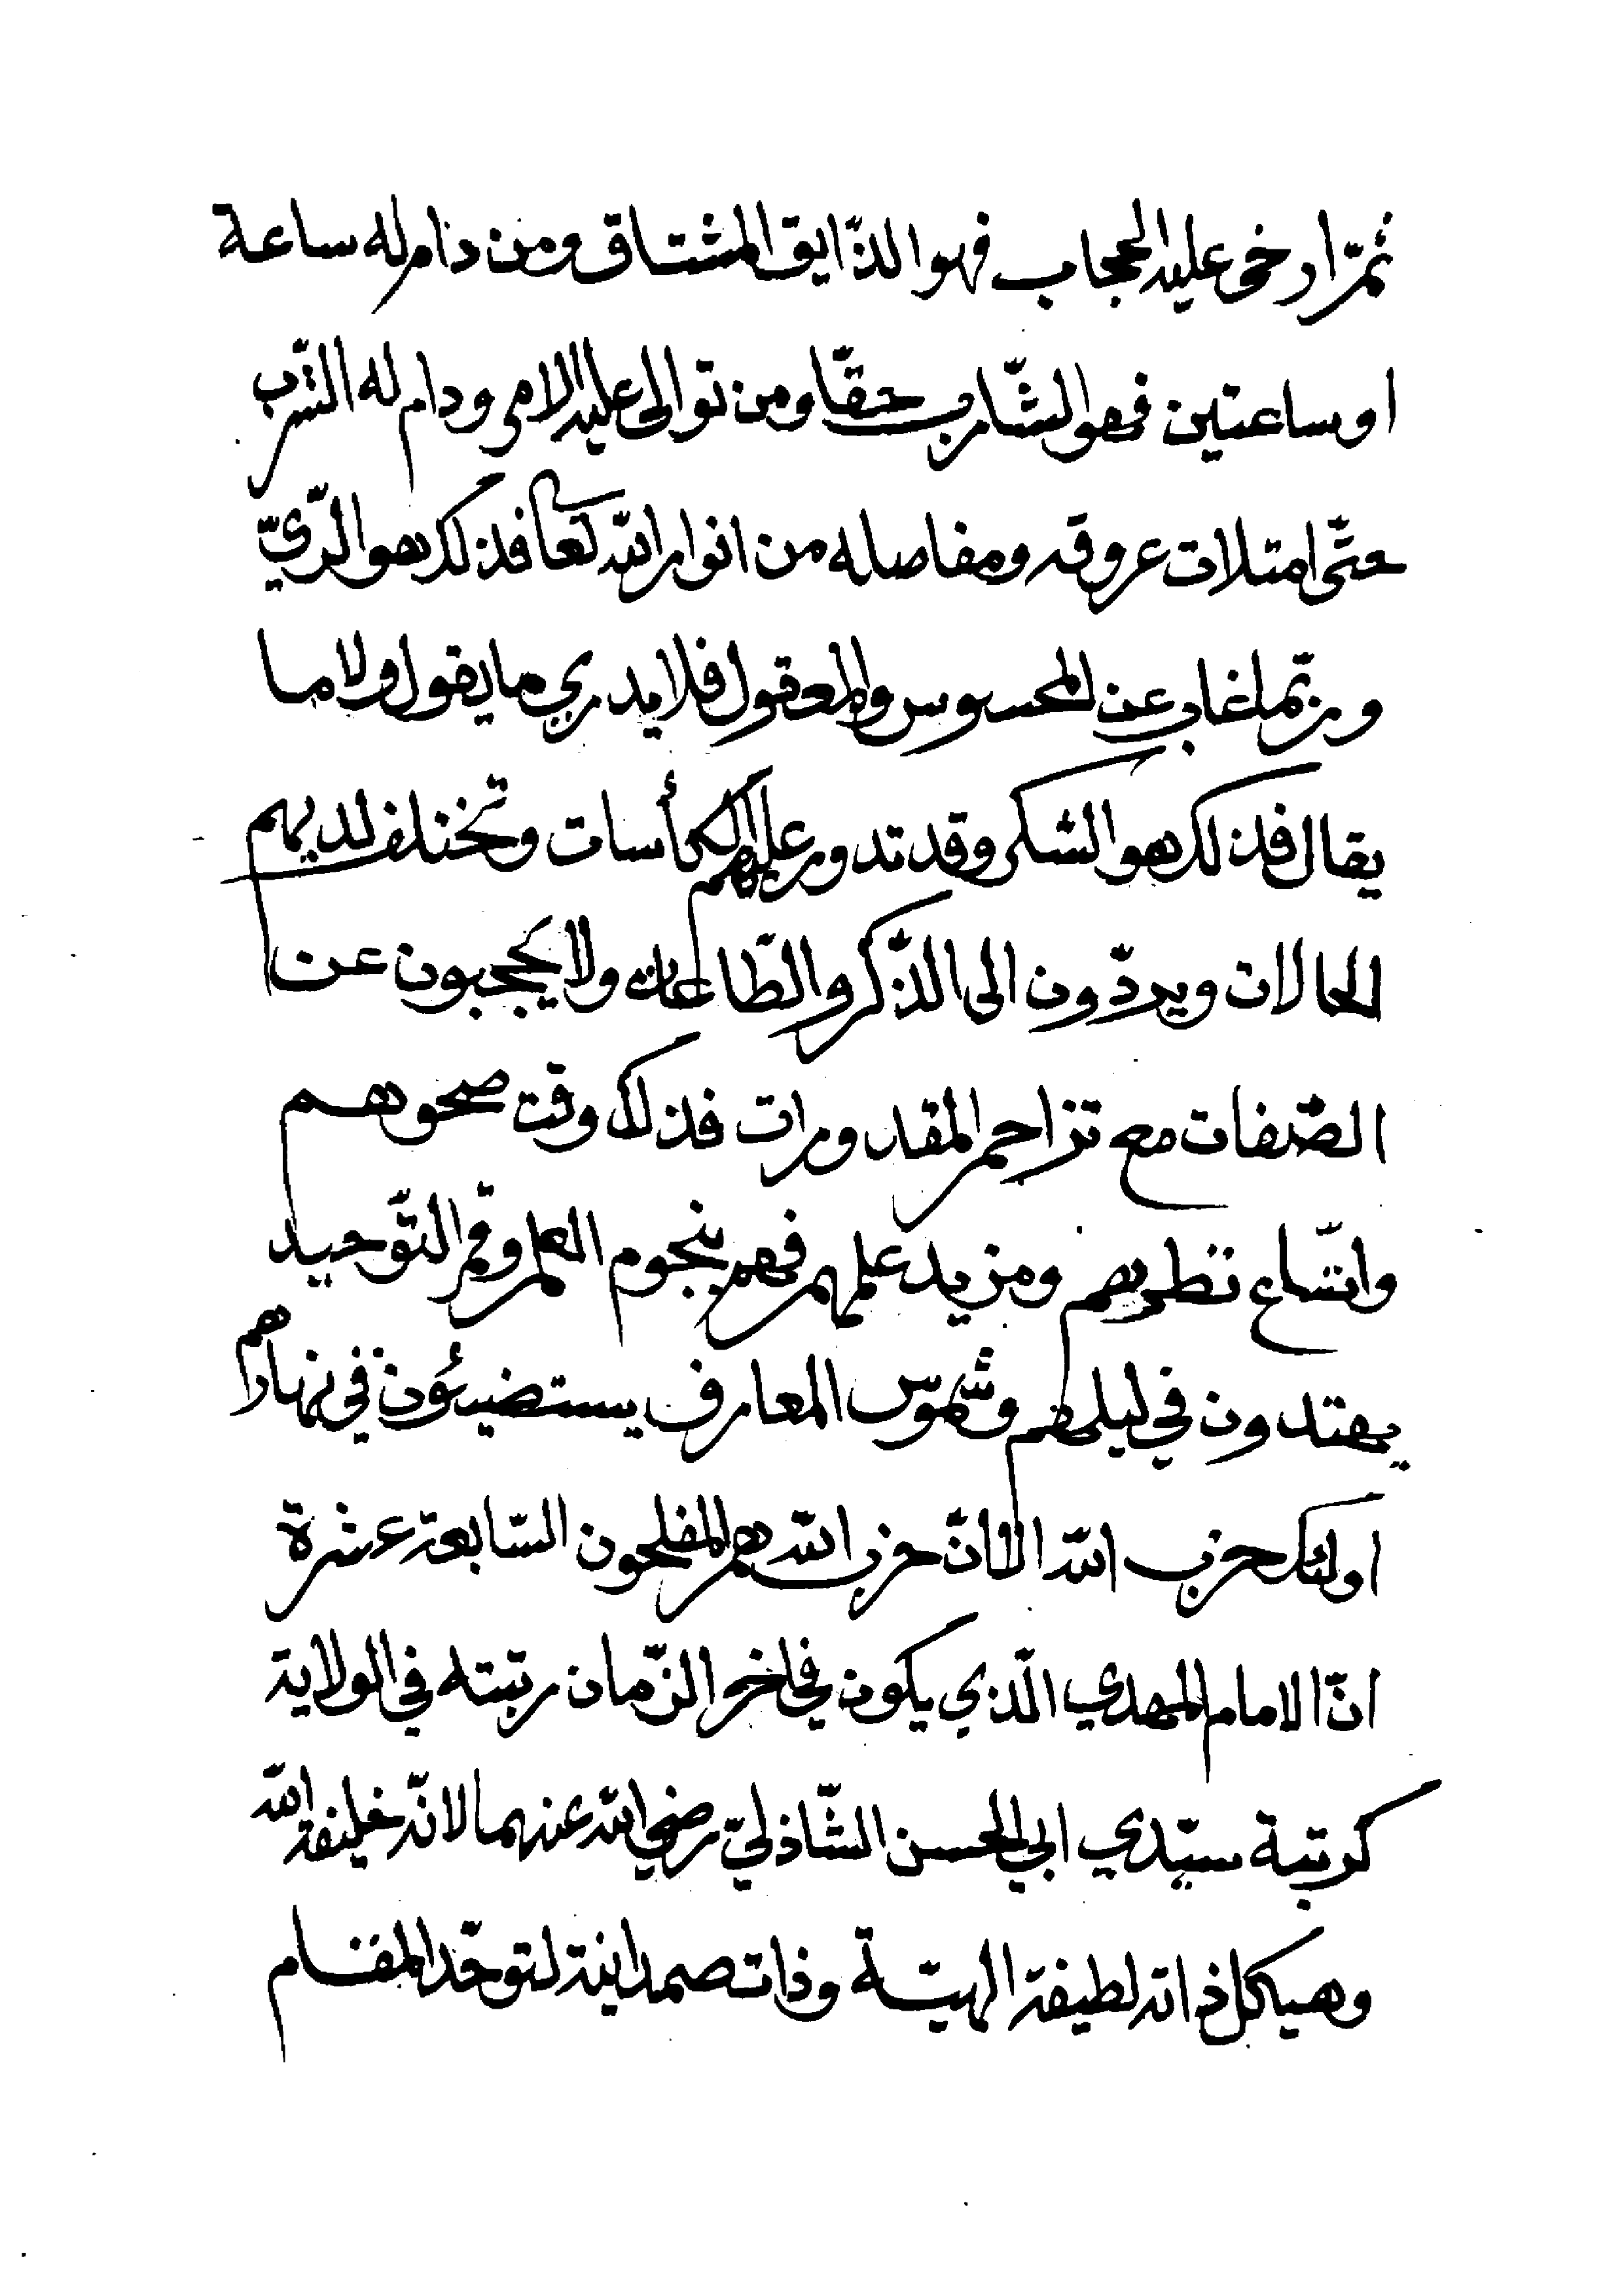 ثمّ ارخى عليه الحجاب فهو الذّايق المشتاق ومن دام له ساعة
او ساعتين فهو الشّارب حقّا ومن توالى عليه الامر ودام له الشّرب
حتّى امتلات عروقه ومفاصله من انوار الله تعا فذلك هو الرّيّ
وربّما غاب عن المحسوس والمعقول فلا يدري ما يقول ولا ما
يقال فذلك هو السّكر وقد تدور عليهم الكأسات وتختلف لديهم
الحالات ويردّون الى الذّكر والطّاعات ولا يحجبون عن
الصّفات مع تزاحم المقدورات فذلك وقت صحوهم
واتّساع نظرهم ومزيد علمهم فهم بنجوم العلم وقمر التّوحيد
يهتدون في ليلهم وشموس المعارف يستضيئون في نهارهم
اولئك حزب الله الا انّ حزب الله هم المفلحون السّابعة عشرة
انّ الامام المهدي الّذي يكون في اخر الزّمان رتبته في الولاية
كرتبة سيّدي ابي الحسن الشّاذليّ رضي الله عنهما لانّه خليفة الله
وهيكل ذاته لطيفة الهيّة وذات صمدانية لتوحّد المقام